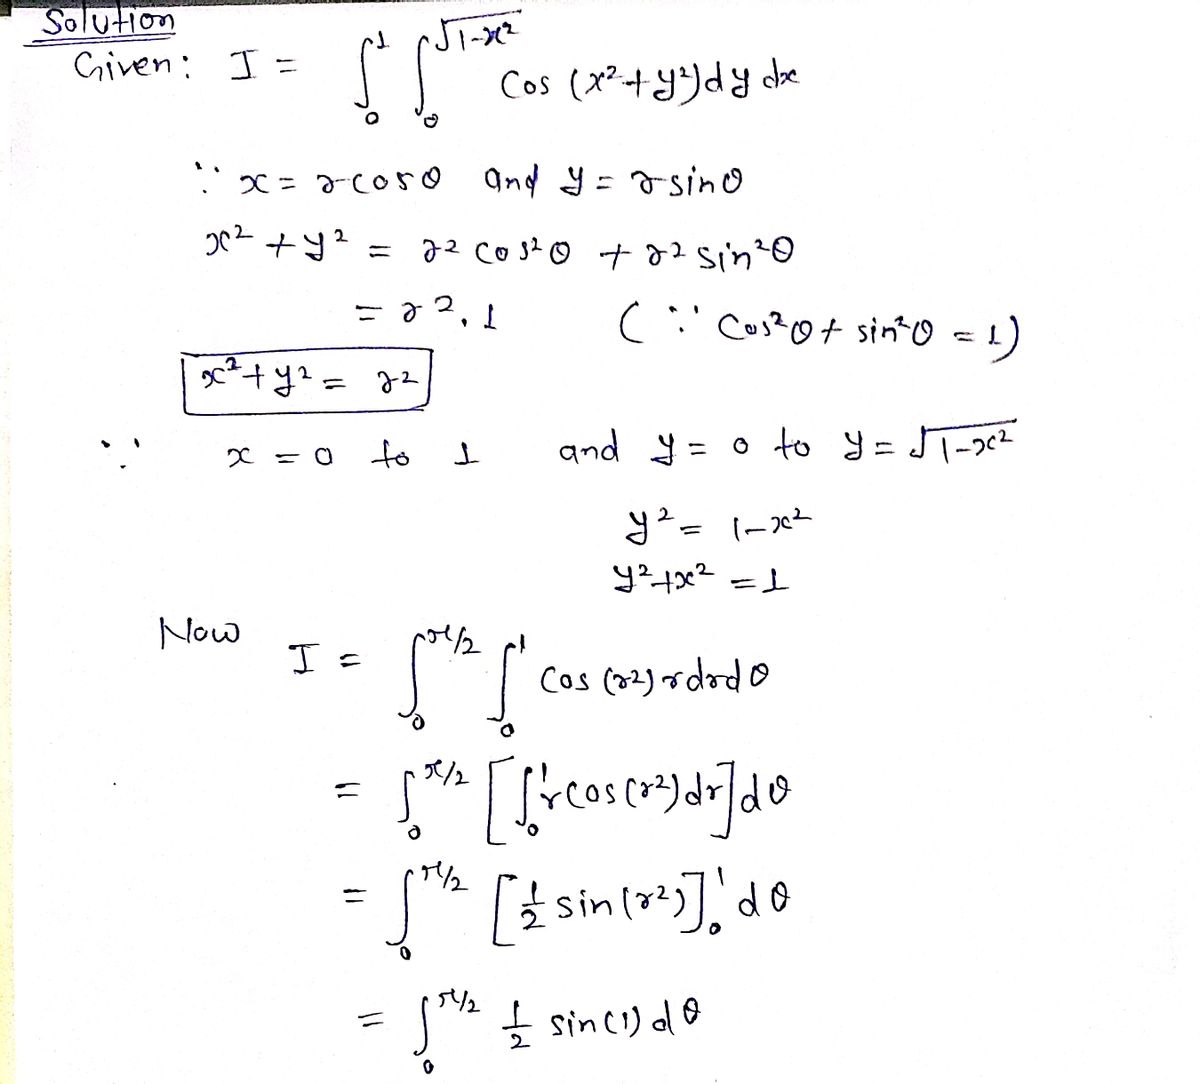 Solution
Given: I = ∫₀¹ ∫₀^√(1-x²) Cos (x²+y²) dy dx
∵ x = r cosθ and y = r sinθ
x² + y² = r² cos²θ + r² sin²θ
= r² . 1 (∵ Cos²θ + sin²θ = 1)
x² + y² = r²
∵ x = 0 to 1 and y = 0 to y = √(1-x²)
y² = 1-x²
y² + x² = 1
Now I = ∫₀^π/2 ∫₀¹ Cos (r²) r dr dθ
= ∫₀^π/2 [∫₀¹ r cos(r²) dr] dθ
= ∫₀^π/2 [1/2 sin(r²)]₀¹ dθ
= ∫₀^π/2 1/2 sin(1) dθ